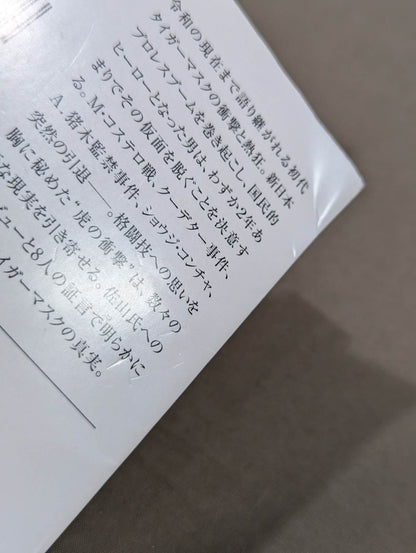 令和の現在まで語り継がれる初代
タイガーマスクの衝撃と熱狂。新日本
プロレスブームを巻き起こし、国民的
ヒーローとなった男は、わずか2年あ
まりでその仮面を脱ぐことを決意す
る。M・コステロ戦、クーデター事件、
A.猪木監禁事件、ショウジ・コンチャ、
突然の引退――。格闘技への思いを
胸に秘めた“虎の衝撃”は、数々の
な現実を引き寄せる。佐山氏への
ビューと8人の証言で明らかに
イガーマスクの真実。